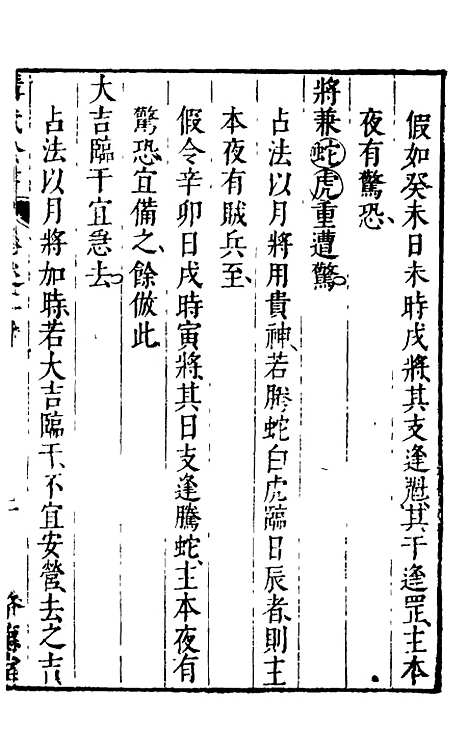 假如癸未日未時戌將其支逢魁其干逢罡主本
夜有驚恐
將兼蛇虎重遭驚
占法以月將用貴神若騰蛇白虎臨日辰者則主
本夜有賊兵至
假令辛卯日戌時寅將其日支逢騰蛇主本夜有
驚恐宜備之餘倣此
大吉臨干宜急去
占法以月將加時若大吉臨干不宜安營去之吉